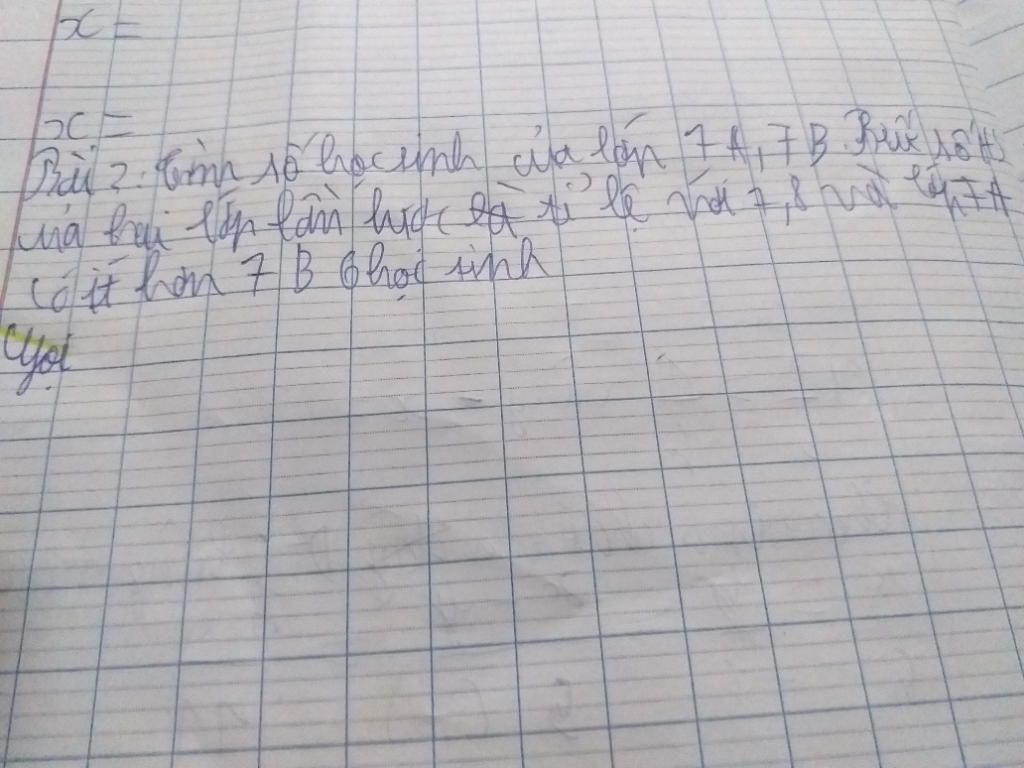 x =
x =
Bài 2: Tìm số học sinh của lớp 7A, 7B. Biết số HS
của hai lớp lần lượt là tỉ lệ với 7,8 và lớp 7A
có ít hơn 7B 6 học sinh
Gọi